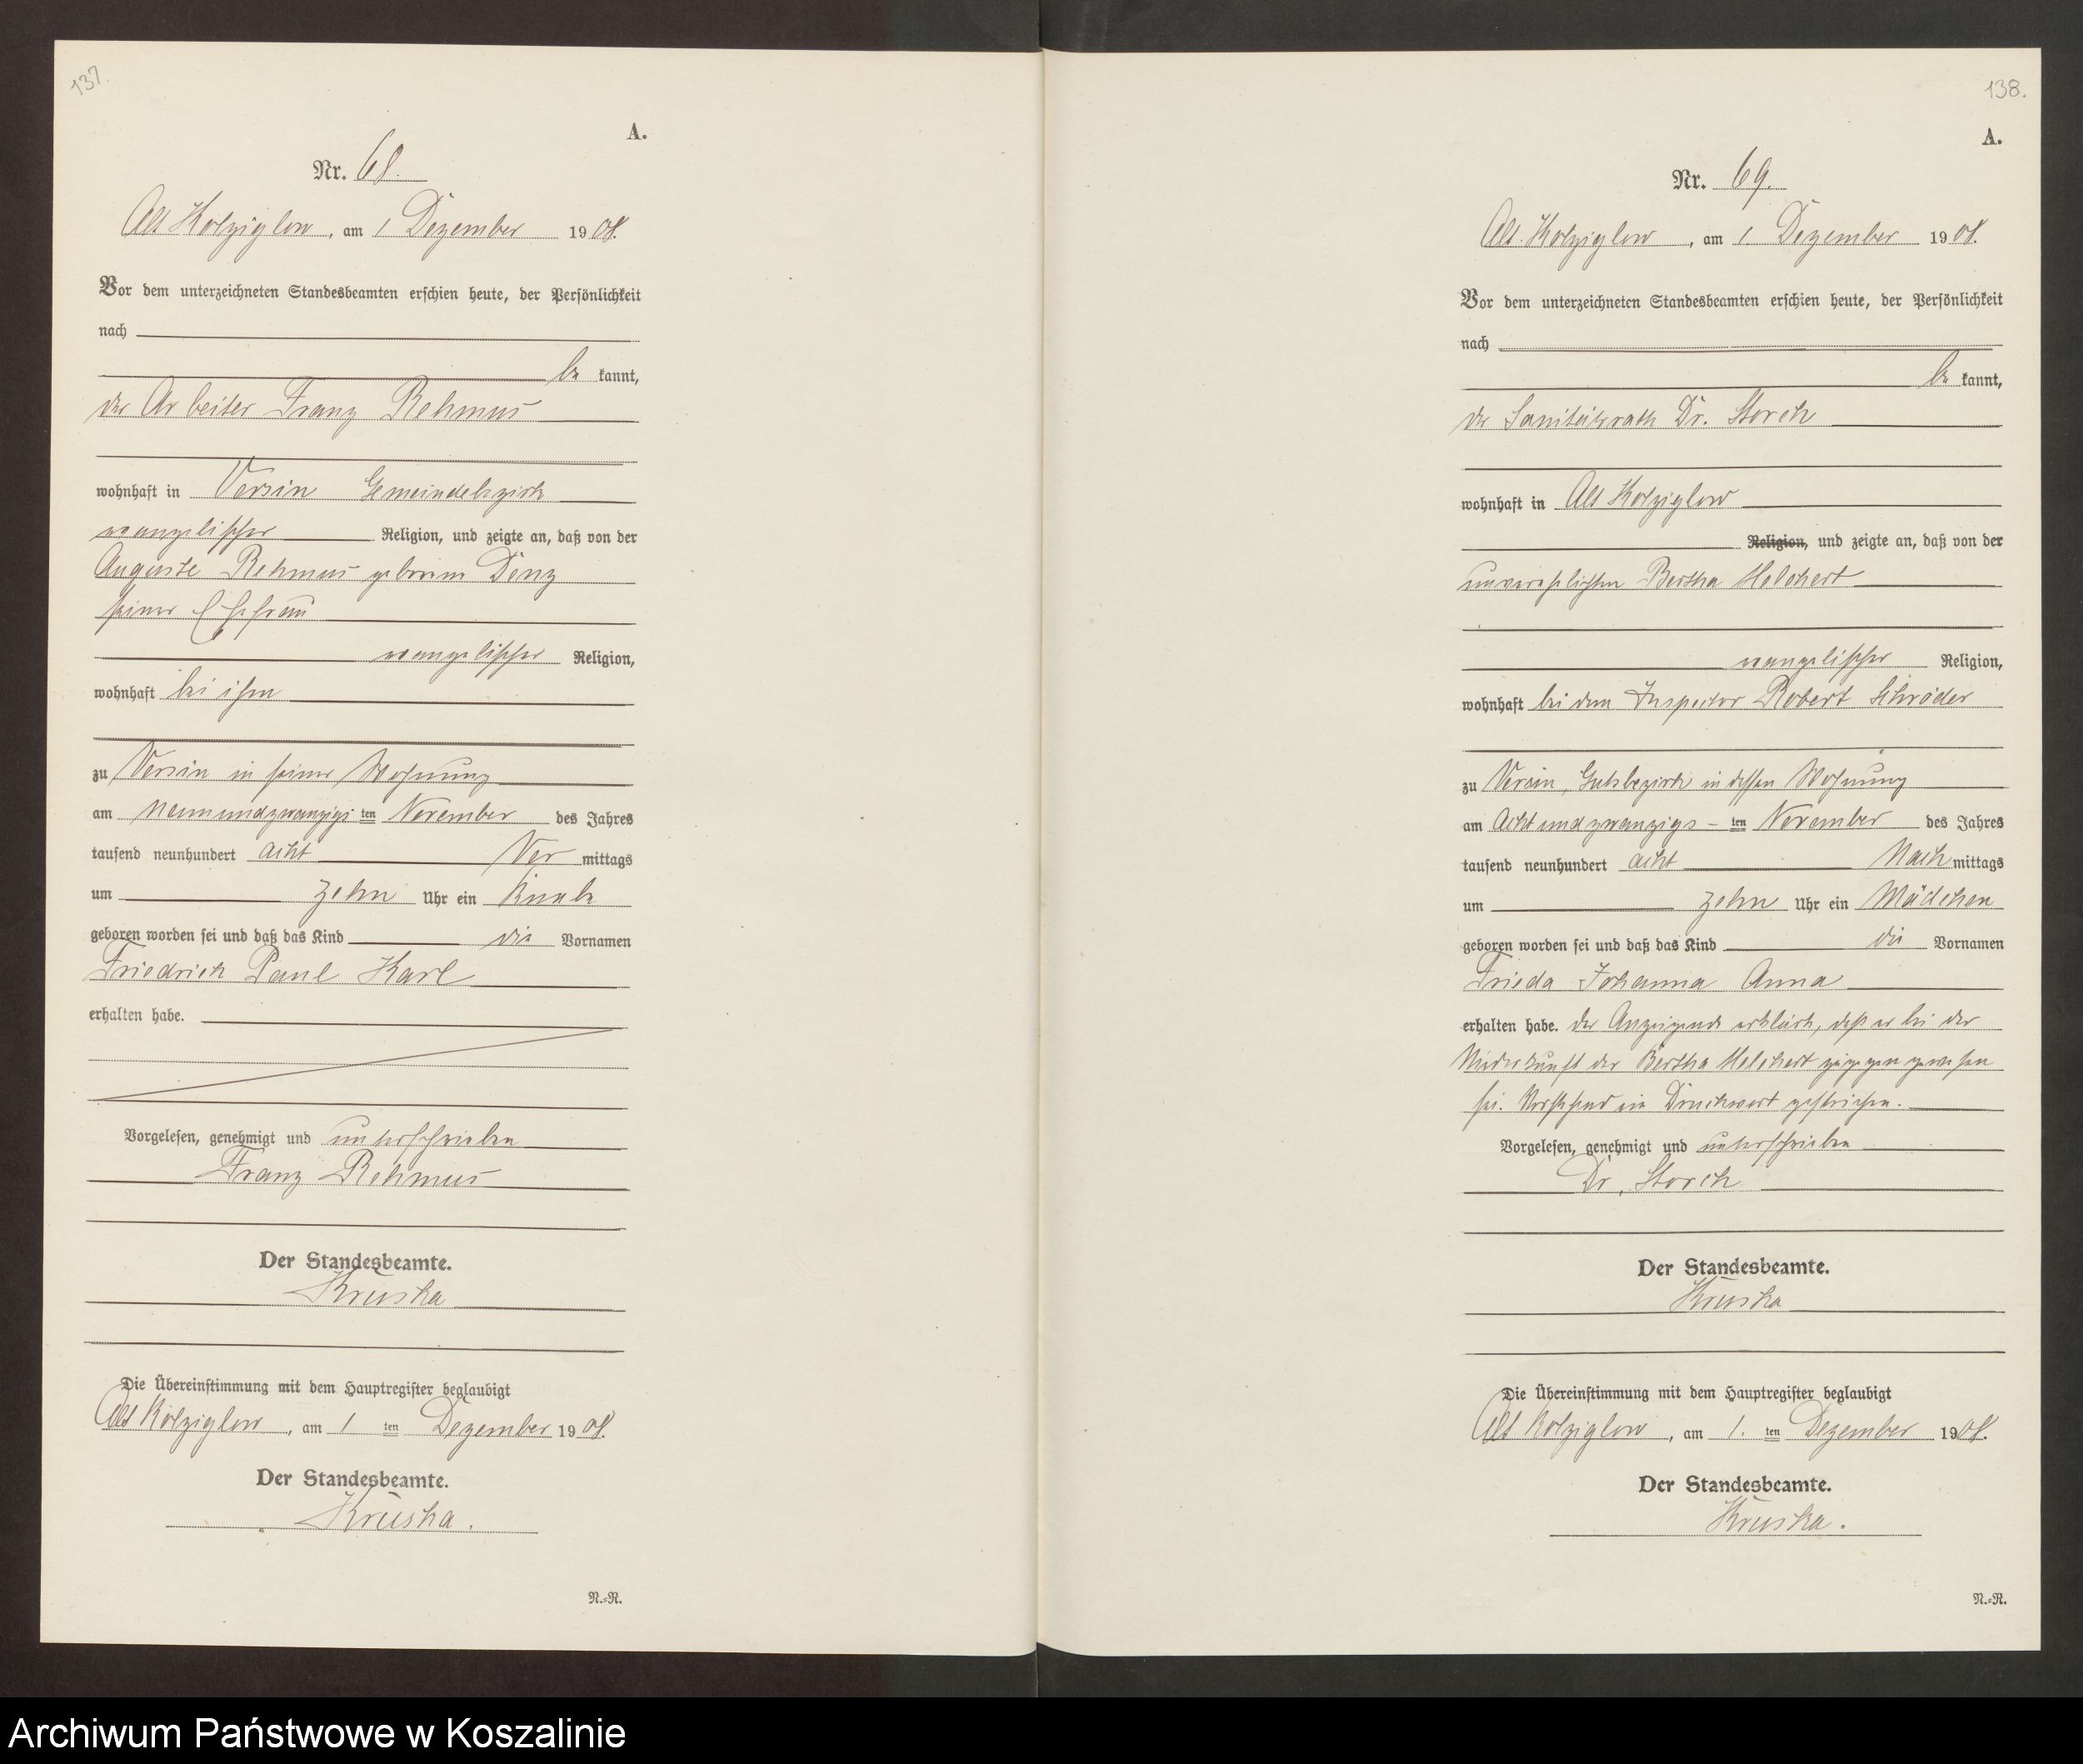 137.
A.
Nr. 68.
Alt Kolziglow, am 1 Dezember 1908.
Vor dem unterzeichneten Standesbeamten erschien heute, der Persönlichkeit
nach
be kannt,
der Arbeiter Franz Rehmus
wohnhaft in Versin Gemeindebezirk
evangelischer Religion, und zeigte an, daß von der
Auguste Rehmus geborene Denz
seiner Ehefrau
evangelischer Religion,
wohnhaft bei ihm
zu Versin in seiner Wohnung
am neunundzwanzigs ten November des Jahres
tausend neunhundert acht Vor mittags
um zehn Uhr ein Knabe
geboren worden sei und daß das Kind die Vornamen
Friedrich Paul Karl
erhalten habe.
Vorgelesen, genehmigt und unterschrieben
Franz Rehmus
Der Standesbeamte.
Kruska
Die Übereinstimmung mit dem Hauptregister beglaubigt
Alt Kolziglow, am 1 ten Dezember 1908.
Der Standesbeamte.
Kruska.
N.=R.
138.
A.
Nr. 69.
Alt. Kolziglow, am 1. Dezember 1908.
Vor dem unterzeichneten Standesbeamten erschien heute, der Persönlichkeit
nach
be kannt,
der Sanitätsrath Dr. Storch
wohnhaft in Alt Kolziglow
Religion, und zeigte an, daß von der
unverehelichten Bertha Melchert
evangelischer Religion,
wohnhaft bei dem Inspector Robert Schröder
zu Versin, Gutsbezirk in dessen Wohnung
am Achtundzwanzigs- ten November des Jahres
tausend neunhundert acht Nach mittags
um zehn Uhr ein Mädchen
geboren worden sei und daß das Kind die Vornamen
Frieda Johanna Anna
erhalten habe. Der Anzeigende erklärt, daß er bei der
Niederkunft der Bertha Melchert zugegen gewesen
sei. Vorstehend ein Druckwort gestrichen.
Vorgelesen, genehmigt und unterschrieben
Dr. Storch
Der Standesbeamte.
Kruska
Die Übereinstimmung mit dem Hauptregister beglaubigt
Alt Kolziglow, am 1. ten Dezember 1908.
Der Standesbeamte.
Kruska.
N.=R.
Archiwum Państwowe w Koszalinie